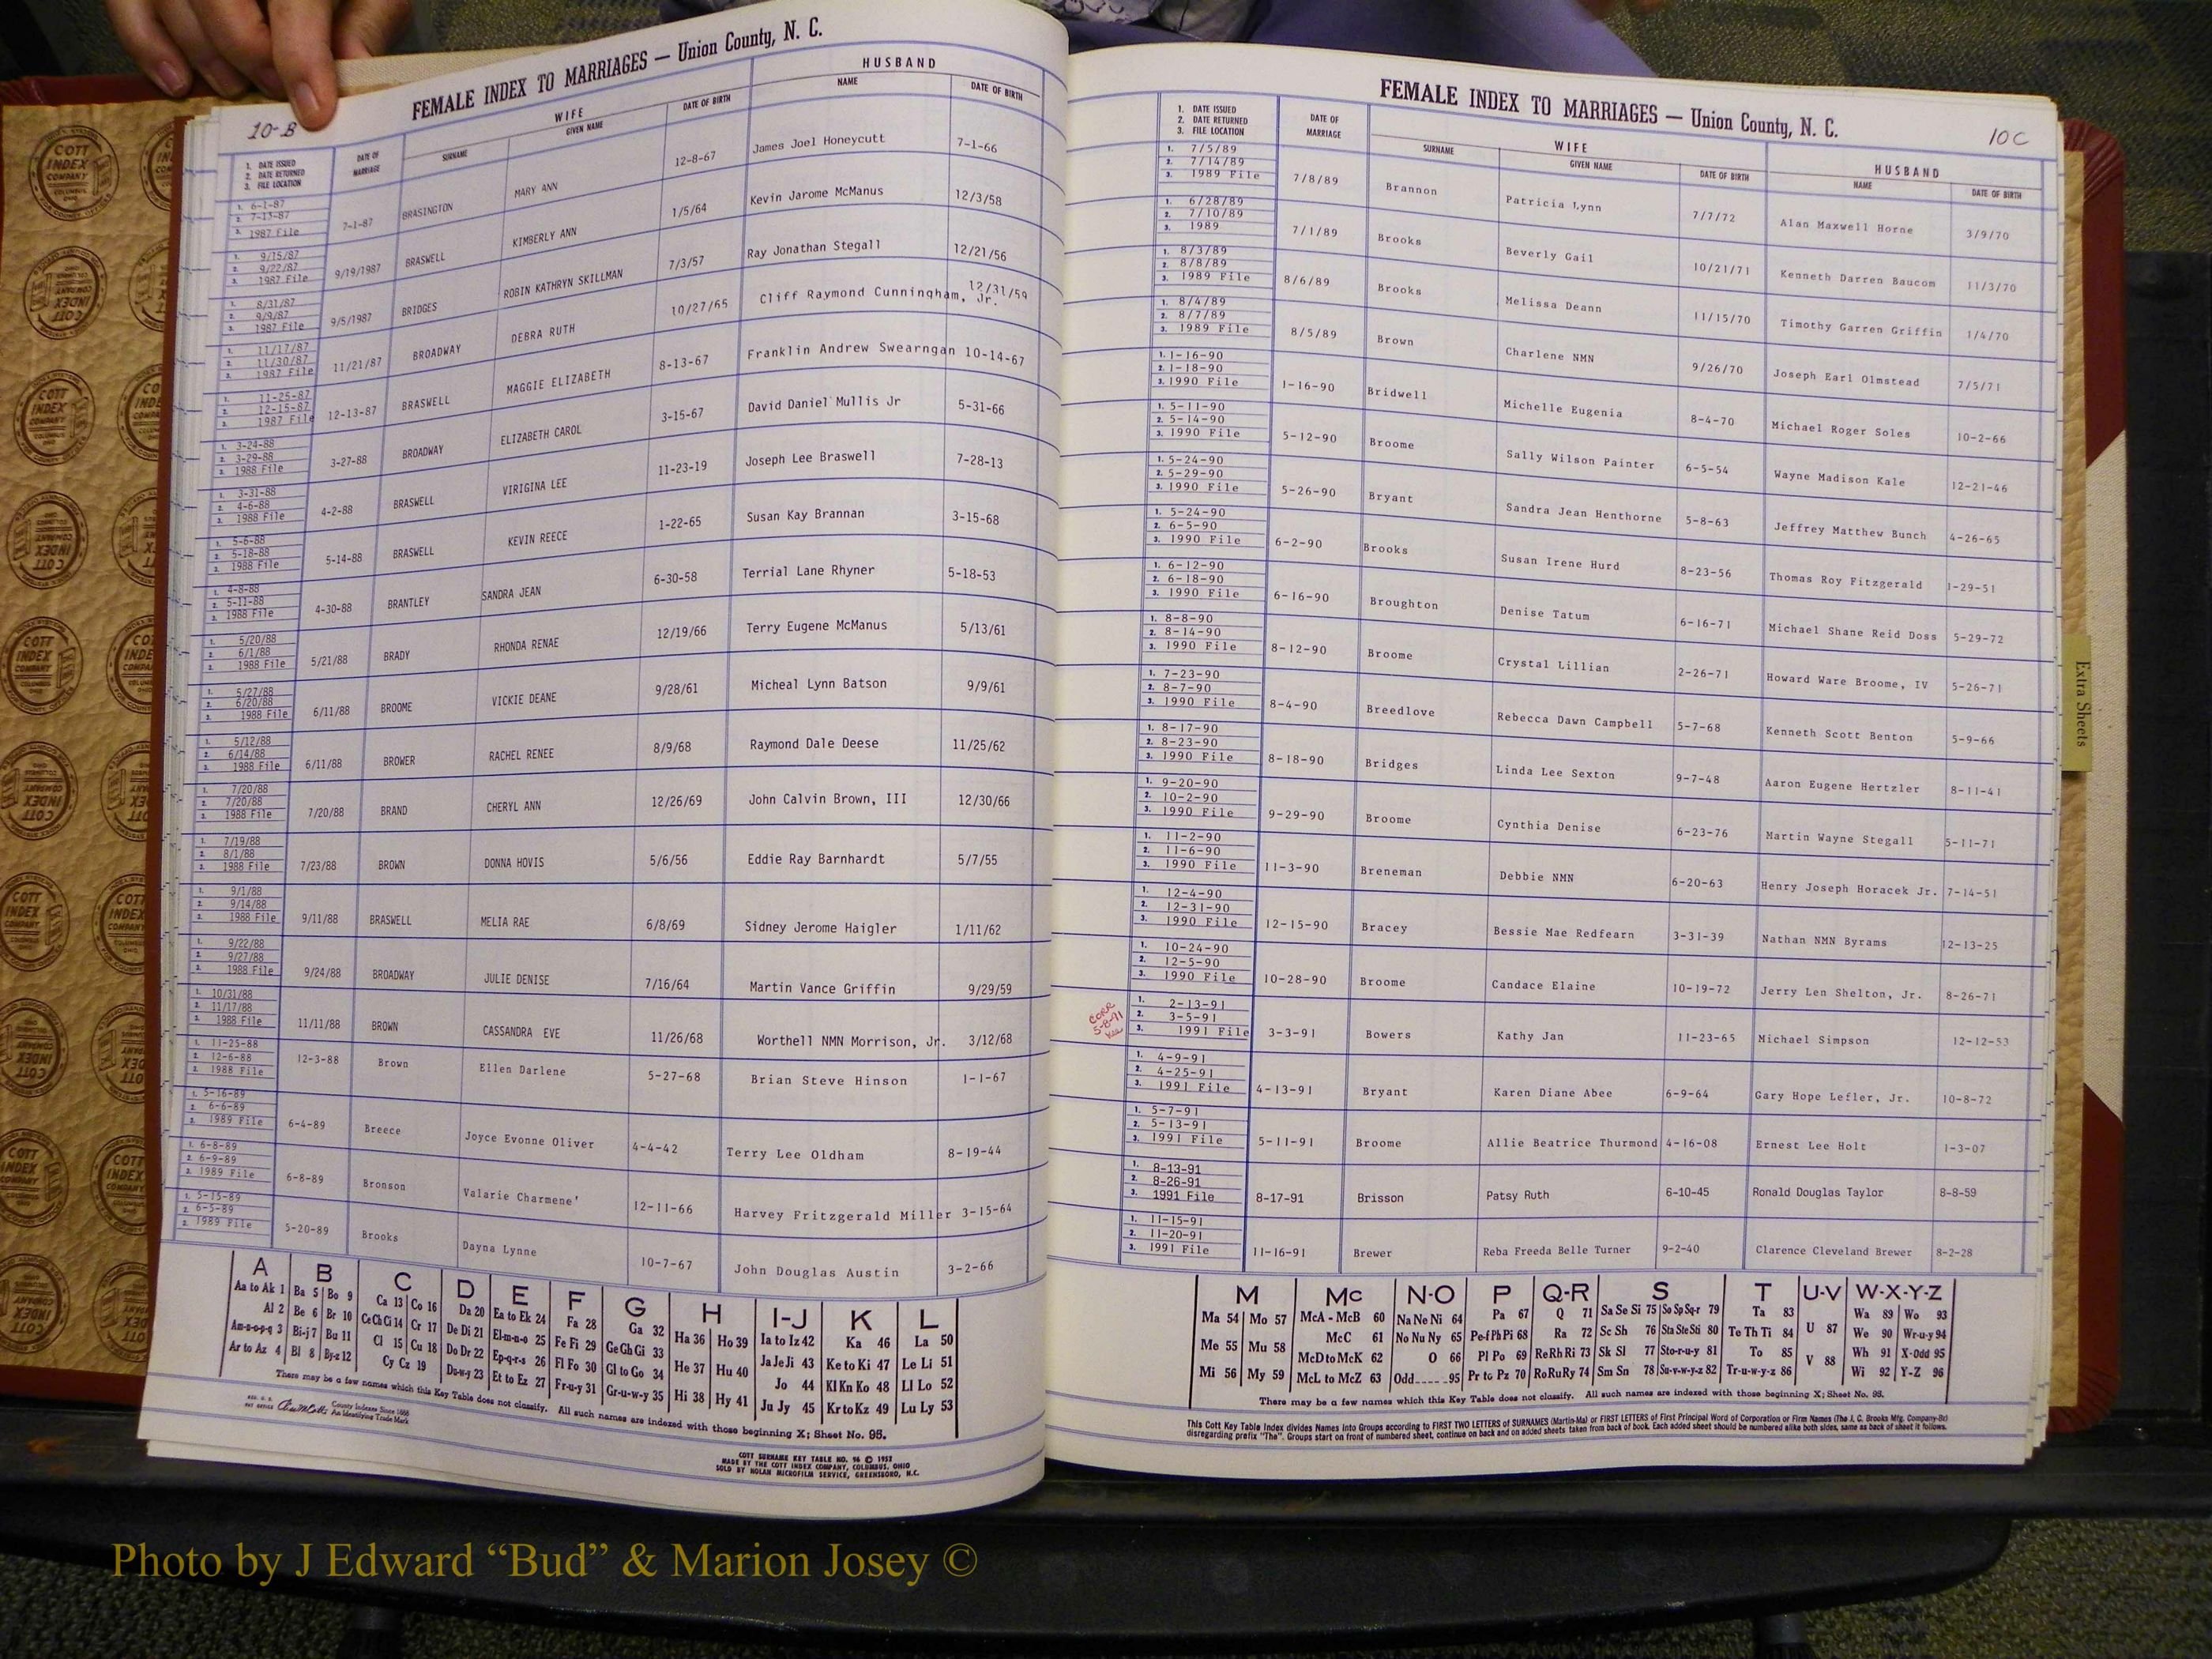 10-B
FEMALE INDEX TO MARRIAGES — Union County, N. C.
1. DATE ISSUED
2. DATE RETURNED
3. FILE LOCATION
DATE OF MARRIAGE
WIFE
SURNAME GIVEN NAME DATE OF BIRTH
HUSBAND
NAME DATE OF BIRTH
1. 6-1-87
2. 7-13-87
3. 1987 File
7-1-87 BRASINGTON MARY ANN 12-8-67 James Joel Honeycutt 7-1-66
1. 9/15/87
2. 9/22/87
3. 1987 File
9/19/1987 BRASWELL KIMBERLY ANN 1/5/64 Kevin Jarome McManus 12/3/58
1. 8/31/87
2. 9/9/87
3. 1987 File
9/5/1987 BRIDGES ROBIN KATHRYN SKILLMAN 7/3/57 Ray Jonathan Stegall 12/21/56
1. 11/17/87
2. 11/30/87
3. 1987 File
11/21/87 BROADWAY DEBRA RUTH 10/27/65 Cliff Raymond Cunningham, Jr. 12/31/59
1. 11-25-87
2. 12-15-87
3. 1987 File
12-13-87 BRASWELL MAGGIE ELIZABETH 8-13-67 Franklin Andrew Swearngan 10-14-67
1. 3-24-88
2. 3-29-88
3. 1988 File
3-27-88 BROADWAY ELIZABETH CAROL 3-15-67 David Daniel Mullis Jr 5-31-66
1. 3-31-88
2. 4-6-88
3. 1988 File
4-2-88 BRASWELL VIRIGINA LEE 11-23-19 Joseph Lee Braswell 7-28-13
1. 5-6-88
2. 5-18-88
3. 1988 File
5-14-88 BRASWELL KEVIN REECE 1-22-65 Susan Kay Brannan 3-15-68
1. 4-8-88
2. 5-11-88
3. 1988 File
4-30-88 BRANTLEY SANDRA JEAN 6-30-58 Terrial Lane Rhyner 5-18-53
1. 5/20/88
2. 6/1/88
3. 1988 File
5/21/88 BRADY RHONDA RENAE 12/19/66 Terry Eugene McManus 5/13/61
1. 5/27/88
2. 6/20/88
3. 1988 File
6/11/88 BROOME VICKIE DEANE 9/28/61 Micheal Lynn Batson 9/9/61
1. 5/12/88
2. 6/14/88
3. 1988 File
6/11/88 BROWER RACHEL RENEE 8/9/68 Raymond Dale Deese 11/25/62
1. 7/20/88
2. 7/20/88
3. 1988 File
7/20/88 BRAND CHERYL ANN 12/26/69 John Calvin Brown, III 12/30/66
1. 7/19/88
2. 8/1/88
3. 1988 File
7/23/88 BROWN DONNA HOVIS 5/6/56 Eddie Ray Barnhardt 5/7/55
1. 9/1/88
2. 9/14/88
3. 1988 File
9/11/88 BRASWELL MELIA RAE 6/8/69 Sidney Jerome Haigler 1/11/62
1. 9/22/88
2. 9/27/88
3. 1988 File
9/24/88 BROADWAY JULIE DENISE 7/16/64 Martin Vance Griffin 9/29/59
1. 10/31/88
2. 11/17/88
3. 1988 File
11/11/88 BROWN CASSANDRA EVE 11/26/68 Worthell NMN Morrison, Jr. 3/12/68
1. 11-25-88
2. 12-6-88
3. 1988 File
12-3-88 Brown Ellen Darlene 5-27-68 Brian Steve Hinson 1-1-67
1. 5-16-89
2. 6-6-89
3. 1989 File
6-4-89 Breece Joyce Evonne Oliver 4-4-42 Terry Lee Oldham 8-19-44
1. 6-8-89
2. 6-9-89
3. 1989 File
6-8-89 Bronson Valarie Charmene' 12-11-66 Harvey Fritzgerald Miller 3-15-64
1. 5-15-89
2. 6-5-89
3. 1989 File
5-20-89 Brooks Dayna Lynne 10-7-67 John Douglas Austin 3-2-66
A B C D E F G H I-J K L
Aa to Ak 1 Ba 5 Bo 9 Ca 13 Co 16 Da 20 Ea to Ek 24 Fa 28 Ga 32 Ha 36 Ho 39 Ia to Iz 42 Ka 46 La 50
Al 2 Be 6 Br 10 Ce Ch Ci 14 Cr 17 De Di 21 El-m-n-o 25 Fe Fi 29 Ge Gh Gi 33 He 37 Hu 40 Ja Je Ji 43 Ke to Ki 47 Le Li 51
Am-n-o-p-q 3 Bi-j 7 Bu 11 Cl 15 Cu 18 Do Dr 22 Ep-q-r-s 26 Fl Fo 30 Gl to Go 34 Hi 38 Hy 41 Jo 44 Kl Kn Ko 48 Ll Lo 52
Ar to Az 4 Bl 8 By-z 12 Cy Cz 19 Du-w-y 23 Et to Ez 27 Fr-u-y 31 Gr-u-w-y 35 Ju Jy 45 Kr to Kz 49 Lu Ly 53
There may be a few names which this Key Table does not classify. All such names are indexed with those beginning X; Sheet No. 95.
County Indexes Since 1888
An Identifying Trade Mark
COTT SURNAME KEY TABLE NO. 96 © 1952
MADE BY THE COTT INDEX COMPANY, COLUMBUS, OHIO
SOLD BY NOLAN MICROFILM SERVICE, GREENSBORO, N.C.
FEMALE INDEX TO MARRIAGES — Union County, N. C.
10C
1. DATE ISSUED
2. DATE RETURNED
3. FILE LOCATION
DATE OF MARRIAGE
WIFE
SURNAME GIVEN NAME DATE OF BIRTH
HUSBAND
NAME DATE OF BIRTH
1. 7/5/89
2. 7/14/89
3. 1989 File
7/8/89 Brannon Patricia Lynn 7/7/72 Alan Maxwell Horne 3/9/70
1. 6/28/89
2. 7/10/89
3. 1989
7/1/89 Brooks Beverly Gail 10/21/71 Kenneth Darren Baucom 11/3/70
1. 8/3/89
2. 8/8/89
3. 1989 File
8/6/89 Brooks Melissa Deann 11/15/70 Timothy Garren Griffin 1/4/70
1. 8/4/89
2. 8/7/89
3. 1989 File
8/5/89 Brown Charlene NMN 9/26/70 Joseph Earl Olmstead 7/5/71
1. 1-16-90
2. 1-18-90
3. 1990 File
1-16-90 Bridwell Michelle Eugenia 8-4-70 Michael Roger Soles 10-2-66
1. 5-11-90
2. 5-14-90
3. 1990 File
5-12-90 Broome Sally Wilson Painter 6-5-54 Wayne Madison Kale 12-21-46
1. 5-24-90
2. 5-29-90
3. 1990 File
5-26-90 Bryant Sandra Jean Henthorne 5-8-63 Jeffrey Matthew Bunch 4-26-65
1. 5-24-90
2. 6-5-90
3. 1990 File
6-2-90 Brooks Susan Irene Hurd 8-23-56 Thomas Roy Fitzgerald 1-29-51
1. 6-12-90
2. 6-18-90
3. 1990 File
6-16-90 Broughton Denise Tatum 6-16-71 Michael Shane Reid Doss 5-29-72
1. 8-8-90
2. 8-14-90
3. 1990 File
8-12-90 Broome Crystal Lillian 2-26-71 Howard Ware Broome, IV 5-26-71
1. 7-23-90
2. 8-7-90
3. 1990 File
8-4-90 Breedlove Rebecca Dawn Campbell 5-7-68 Kenneth Scott Benton 5-9-66
1. 8-17-90
2. 8-23-90
3. 1990 File
8-18-90 Bridges Linda Lee Sexton 9-7-48 Aaron Eugene Hertzler 8-11-41
1. 9-20-90
2. 10-2-90
3. 1990 File
9-29-90 Broome Cynthia Denise 6-23-76 Martin Wayne Stegall 5-11-71
1. 11-2-90
2. 11-6-90
3. 1990 File
11-3-90 Breneman Debbie NMN 6-20-63 Henry Joseph Horacek Jr. 7-14-51
1. 12-4-90
2. 12-31-90
3. 1990 File
12-15-90 Bracey Bessie Mae Redfearn 3-31-39 Nathan NMN Byrams 12-13-25
1. 10-24-90
2. 12-5-90
3. 1990 File
10-28-90 Broome Candace Elaine 10-19-72 Jerry Len Shelton, Jr. 8-26-71
CORR
5-8-91
1. 2-13-91
2. 3-5-91
3. 1991 File
3-3-91 Bowers Kathy Jan 11-23-65 Michael Simpson 12-12-53
1. 4-9-91
2. 4-25-91
3. 1991 File
4-13-91 Bryant Karen Diane Abee 6-9-64 Gary Hope Lefler, Jr. 10-8-72
1. 5-7-91
2. 5-13-91
3. 1991 File
5-11-91 Broome Allie Beatrice Thurmond 4-16-08 Ernest Lee Holt 1-3-07
1. 8-13-91
2. 8-26-91
3. 1991 File
8-17-91 Brisson Patsy Ruth 6-10-45 Ronald Douglas Taylor 8-8-59
1. 11-15-91
2. 11-20-91
3. 1991 File
11-16-91 Brewer Reba Freeda Belle Turner 9-2-40 Clarence Cleveland Brewer 8-2-28
M Mc N-O P Q-R S T U-V W-X-Y-Z
Ma 54 Mo 57 McA - McB 60 Na Ne Ni 64 Pa 67 Q 71 Sa Se Si 75 So Sp Sq-r 79 Ta 83 U 87 Wa 89 Wo 93
Me 55 Mu 58 McC 61 No Nu Ny 65 Pe-f Ph Pi 68 Ra 72 Sc Sh 76 Sta Ste Sti 80 Te Th Ti 84 V 88 We 90 Wr-u-y 94
McD to McK 62 O 66 Pl Po 69 Re Rh Ri 73 Sk Sl 77 Sto-r-u-y 81 To 85 Wh 91 X-Odd 95
Mi 56 My 59 McL to McZ 63 Odd.....95 Pr to Pz 70 Ro Ru Ry 74 Sm Sn 78 Su-v-w-y-z 82 Tr-u-w-y-z 86 Wi 92 Y-Z 96
There may be a few names which this Key Table does not classify. All such names are indexed with those beginning X; Sheet No. 95.
This Cott Key Table Index divides Names into Groups according to FIRST TWO LETTERS of SURNAMES (Martin-Ma) or FIRST LETTERS of First Principal Word of Corporation or Firm Names (The J. C. Brooks Mfg. Company-Br)
disregarding prefix "The". Groups start on front of numbered sheet, continue on back and on added sheets taken from back of book. Each added sheet should be numbered alike both sides, same as back of sheet it follows.
Extra Sheets
COTT
INDEX
COMPANY
Photo by J Edward “Bud” & Marion Josey ©